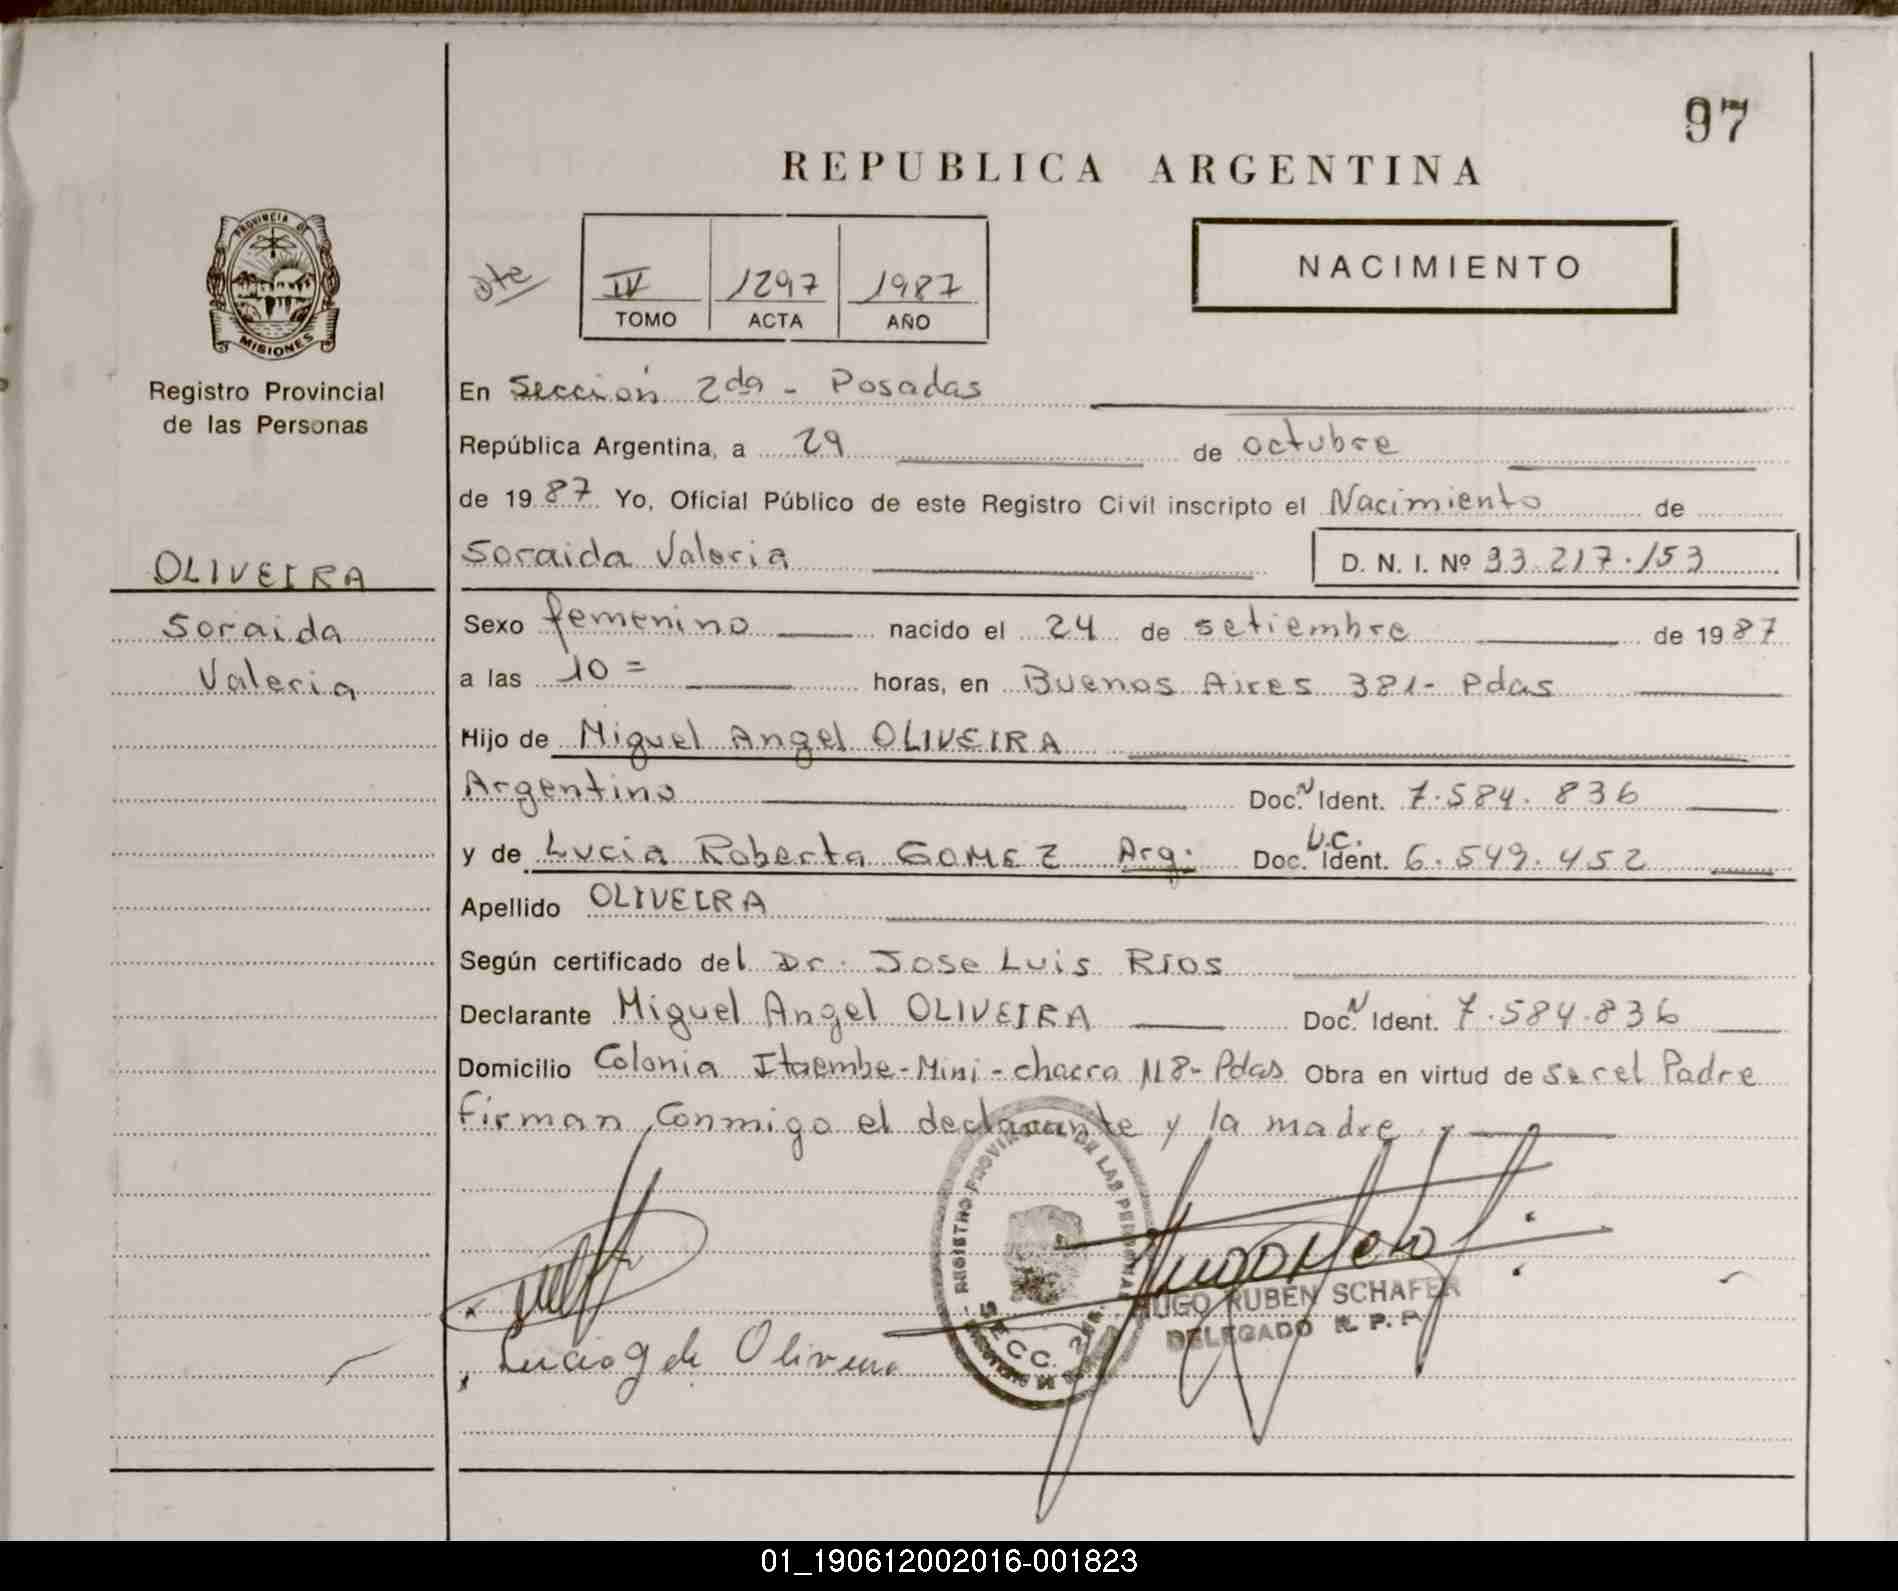 97
REPUBLICA ARGENTINA
PROVINCIA DE
MISIONES
Registro Provincial
de las Personas
IV 1297 1987
TOMO ACTA AÑO
NACIMIENTO
En Sección 2da - Posadas
República Argentina, a 29 de octubre
de 1987 Yo, Oficial Público de este Registro Civil inscripto el Nacimiento de
OLIVEIRA
Soraida Valeria D. N. I. Nº 33.217.153
Soraida
Sexo femenino nacido el 24 de setiembre de 1987
Valeria
a las 10= horas, en Buenos Aires 381- Pdas
Hijo de Miguel Angel OLIVEIRA
Argentino Doc. N Ident. 7.584.836
y de Lucia Roberta GOMEZ Arg. Doc. L.C. Ident. 6.549.452
Apellido OLIVEIRA
Según certificado del Dr. Jose Luis RIOS
Declarante Miguel Angel OLIVEIRA Doc. N Ident. 7.584.836
Domicilio Colonia Itaembe-Mini-chacra 118-Pdas Obra en virtud de ser el Padre
firman conmigo el declarante y la madre
REGISTRO PROVINCIAL DE LAS PERSONAS
SECC. 2da.
HUGO RUBEN SCHAFER
DELEGADO R. P. P.
Lucia G de Oliveira
01_190612002016-001823